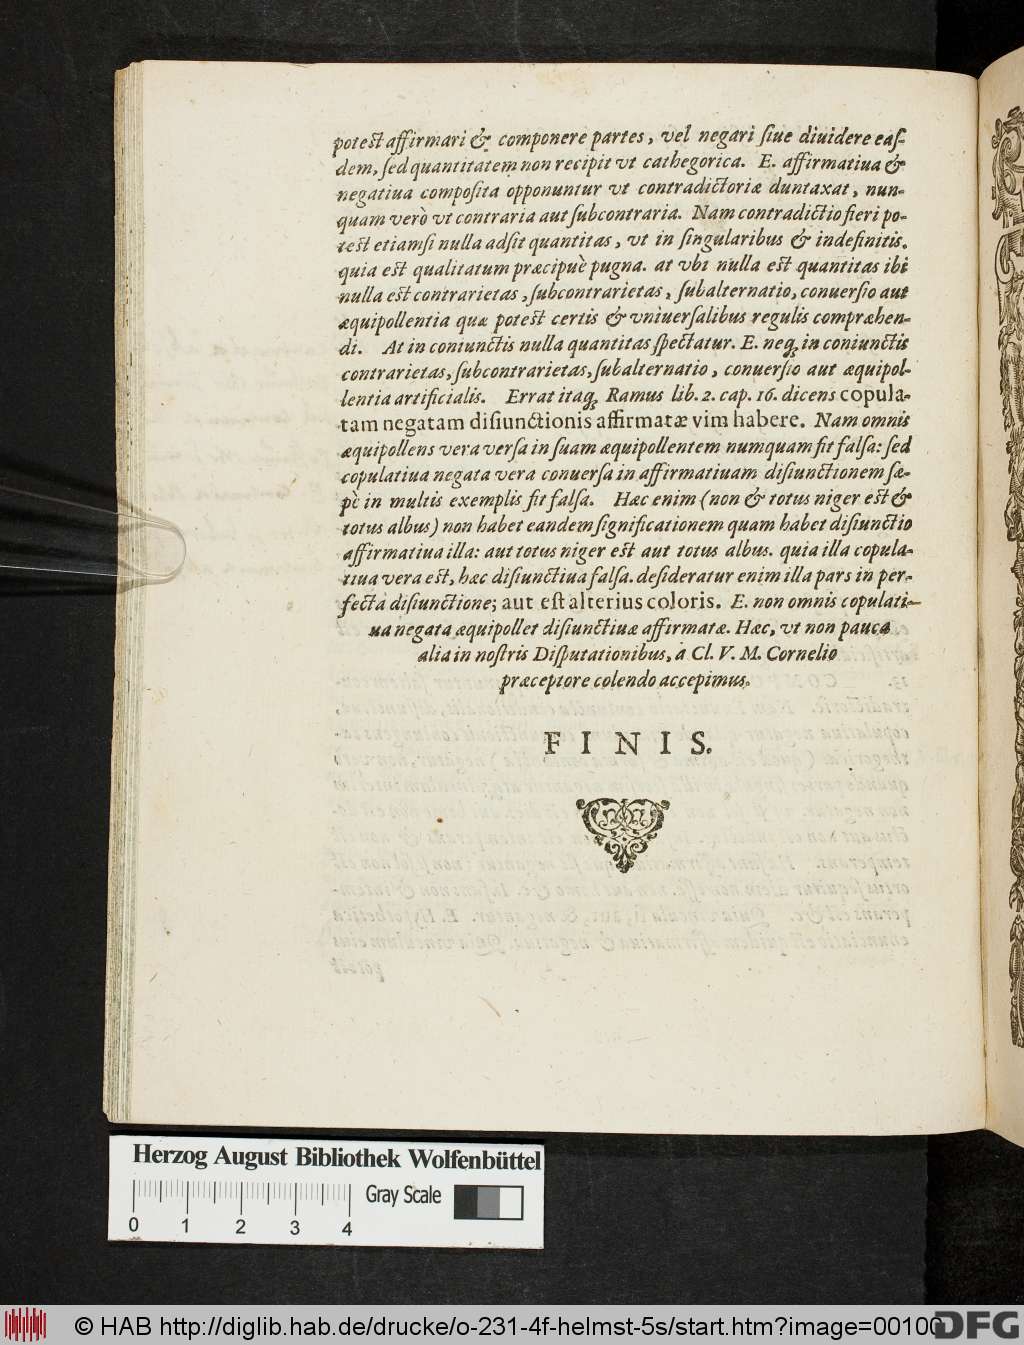 potest affirmari & componere partes, vel negari siue diuidere eas-
dem, sed quantitatem non recipit vt cathegorica. E. affirmatiua &
negatiua composita opponuntur vt contradictoriæ duntaxat, nun-
quam verò vt contraria aut subcontraria. Nam contradictio fieri po-
test etiamsi nulla adsit quantitas, vt in singularibus & indefinitis.
quia est qualitatum præcipuè pugna. at vbi nulla est quantitas ibi
nulla est contrarietas, subcontrarietas, subalternatio, conuersio aut
æquipollentia quæ potest certis & vniuersalibus regulis compræhen-
di. At in coniunctis nulla quantitas spectatur. E. neq; in coniunctis
contrarietas, subcontrarietas, subalternatio, conuersio aut æquipol-
lentia artificialis. Errat itaq; Ramus lib. 2. cap. 16. dicens copula-
tam negatam disiunctionis affirmatæ vim habere. Nam omnis
æquipollens vera versa in suam æquipollentem numquam fit falsa: sed
copulatiua negata vera conuersa in affirmatiuam disiunctionem sæ-
pè in multis exemplis fit falsa. Hæc enim (non & totus niger est &
totus albus) non habet eandem significationem quam habet disiunctio
affirmatiua illa: aut totus niger est aut totus albus. quia illa copula-
tiua vera est, hæc disiunctiua falsa. desideratur enim illa pars in per-
fecta disiunctione; aut est alterius coloris. E. non omnis copulati-
ua negata æquipollet disiunctiuæ affirmatæ. Hæc, vt non pauca
alia in nostris Disputationibus, a Cl. V. M. Cornelio
præceptore colendo accepimus.
FINIS.
Herzog August Bibliothek Wolfenbüttel
Gray Scale
0 1 2 3 4
© HAB http://diglib.hab.de/drucke/o-231-4f-helmst-5s/start.htm?image=00100
DFG